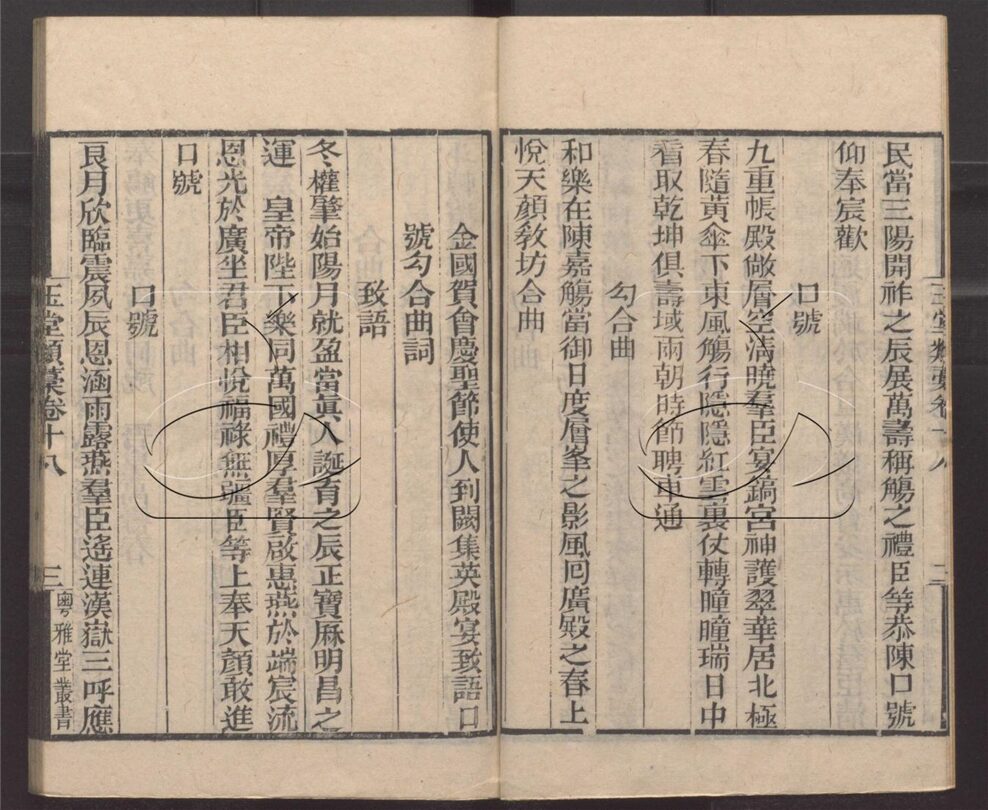 民當三陽開祚之辰展萬壽稱觴之禮臣等恭陳口號
仰奉宸歡
口號
九重帳殿敞層空淸曉羣臣宴鎬宮神護翠華居北極
春隨黃傘下東風觴行隱隱紅雲裏仗轉瞳瞳瑞日中
看取乾坤俱壽域兩朝時節聘車通
勾合曲
和樂在陳嘉觴當御日度層峯之影風回廣殿之春上
悅天顏敎坊合曲
金國賀會慶聖節使人到闕集英殿宴致語口
號勾合曲詞
致語
冬權肇始陽月就盈當眞人誕育之辰正寶厤明昌之
運 皇帝陛下樂同萬國禮厚羣賢啟惠燕於端宸流
恩光於廣坐君臣相悅福祿無疆臣等上奉天顏敢進
口號
口號
良月欣臨震夙辰恩涵雨露燕羣臣遙連漢嶽三呼應
玉堂類稾卷十八 三 粵雅堂叢書